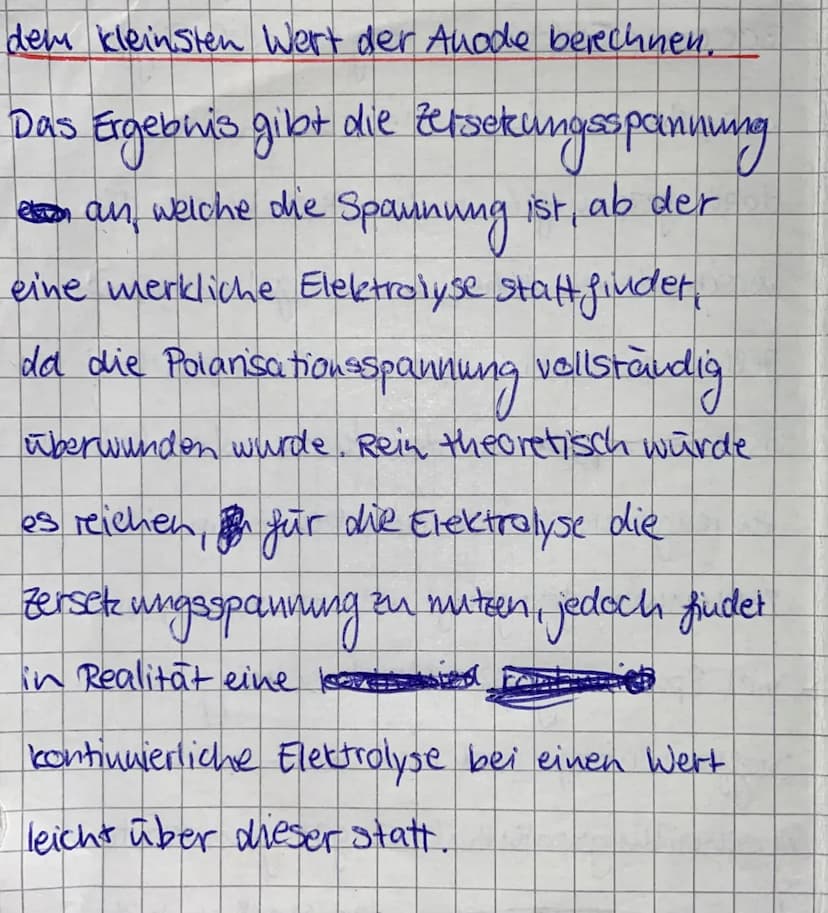 dem kleinsten Wert der Anode berechnen.
Das Ergebnis gibt die Zersetzungsspannung
an, welche die Spannung ist, ab der
eine merkliche Elektrolyse stattfindet,
da die Polarisationsspannung vollständig
überwunden wurde. Rein theoretisch würde
es reichen, für die Elektrolyse die
Zersetzungsspannung zu nutzen, jedoch findet
in Realität eine
kontinuierliche Elektrolyse bei einen Wert
leicht über dieser statt.